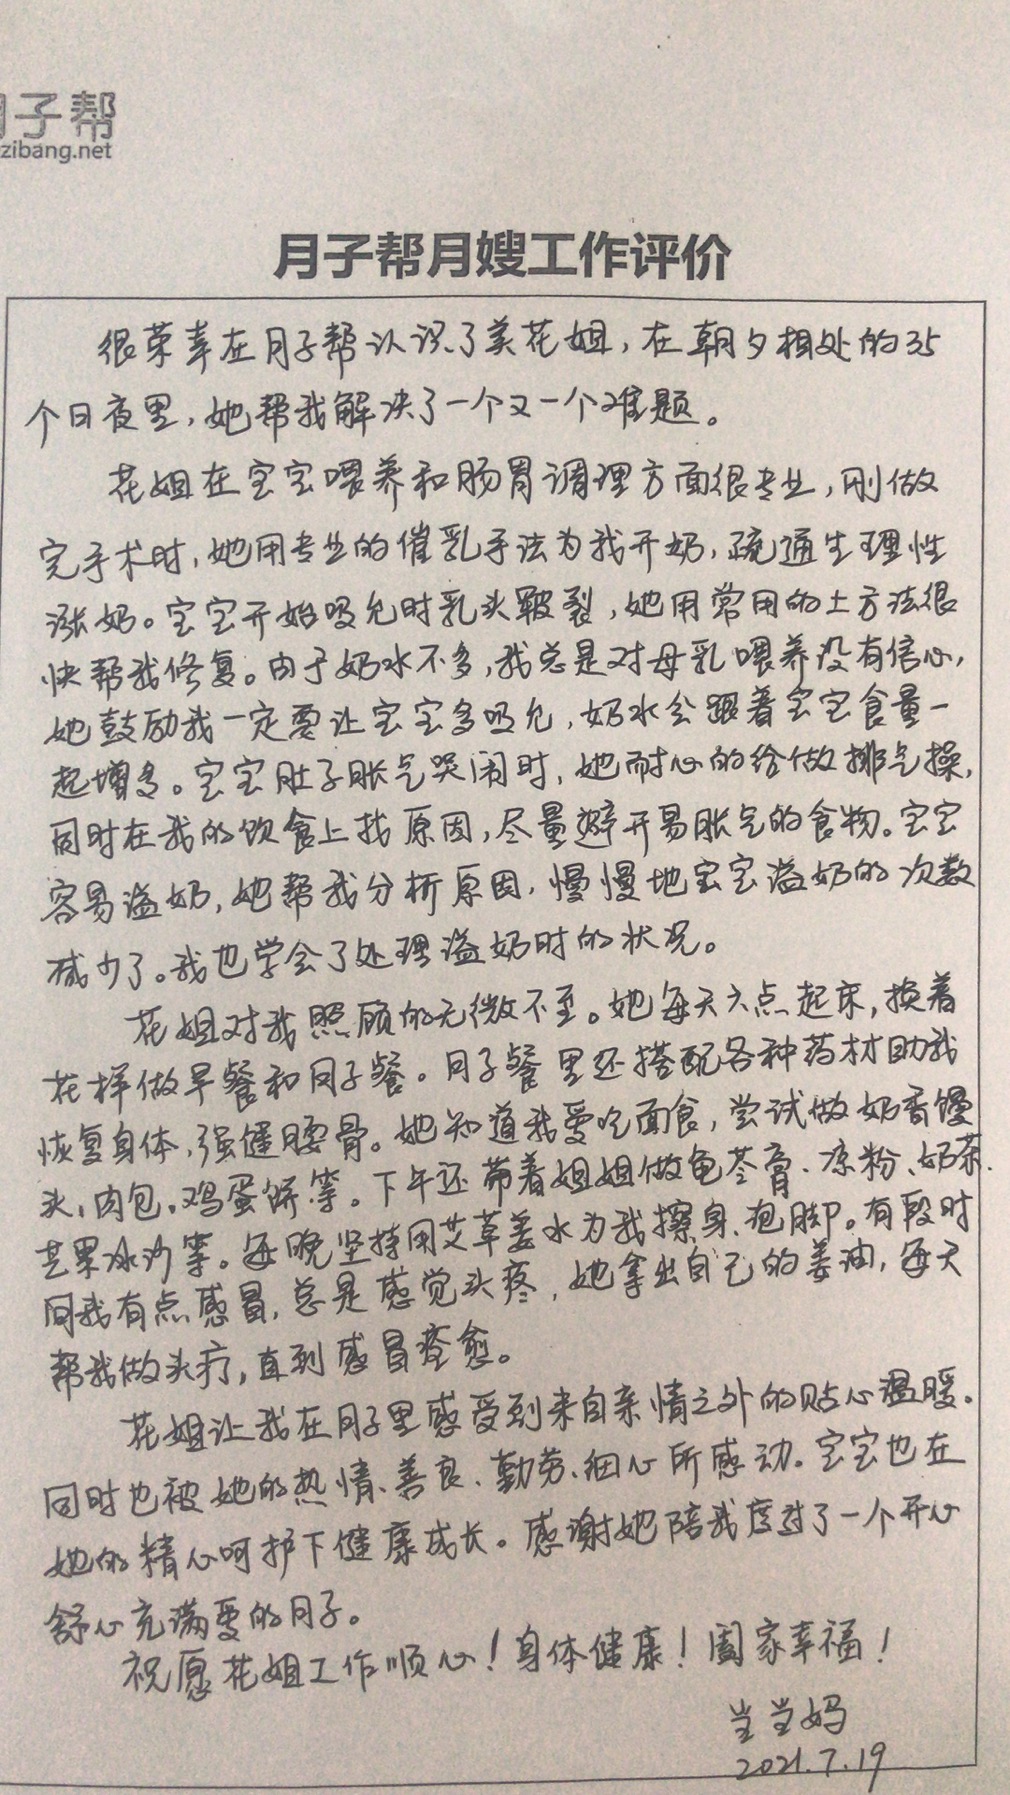 月子帮
zibang.net
月子帮月嫂工作评价
很荣幸在月子帮认识了美花姐，在朝夕相处的35
个日夜里，她帮我解决了一个又一个难题。
花姐在宝宝喂养和肠胃调理方面很专业，刚做
完手术时，她用专业的催乳手法为我开奶，疏通生理性
涨奶。宝宝开始吸允时乳头皲裂，她用常用的土方法很
快帮我修复。由于奶水不多，我总是对母乳喂养没有信心，
她鼓励我一定要让宝宝多吸允，奶水会跟着宝宝食量一
起增多。宝宝肚子胀气哭闹时，她耐心的给做排气操，
同时在我的饮食上找原因，尽量避开易胀气的食物。宝宝
容易溢奶，她帮我分析原因，慢慢地宝宝溢奶的次数
减少了。我也学会了处理溢奶时的状况。
花姐对我照顾的无微不至。她每天六点起床，换着
花样做早餐和月子餐。月子餐里还搭配各种药材助我
恢复身体，强健腰骨。她知道我爱吃面食，尝试做奶香馒
头，肉包，鸡蛋饼等。下午还带着姐姐做龟苓膏、凉粉、奶茶、
芒果冰沙等。每晚坚持用艾草姜水为我擦身、泡脚。有段时
间我有点感冒，总是感觉头疼，她拿出自己的姜油，每天
帮我做头疗，直到感冒痊愈。
花姐让我在月子里感受到来自亲情之外的贴心温暖。
同时也被她的热情、善良、勤劳、细心所感动。宝宝也在
她的精心呵护下健康成长。感谢她陪我度过了一个开心
舒心充满爱的月子。
祝愿花姐工作顺心！身体健康！阖家幸福！
当当妈
2021.7.19